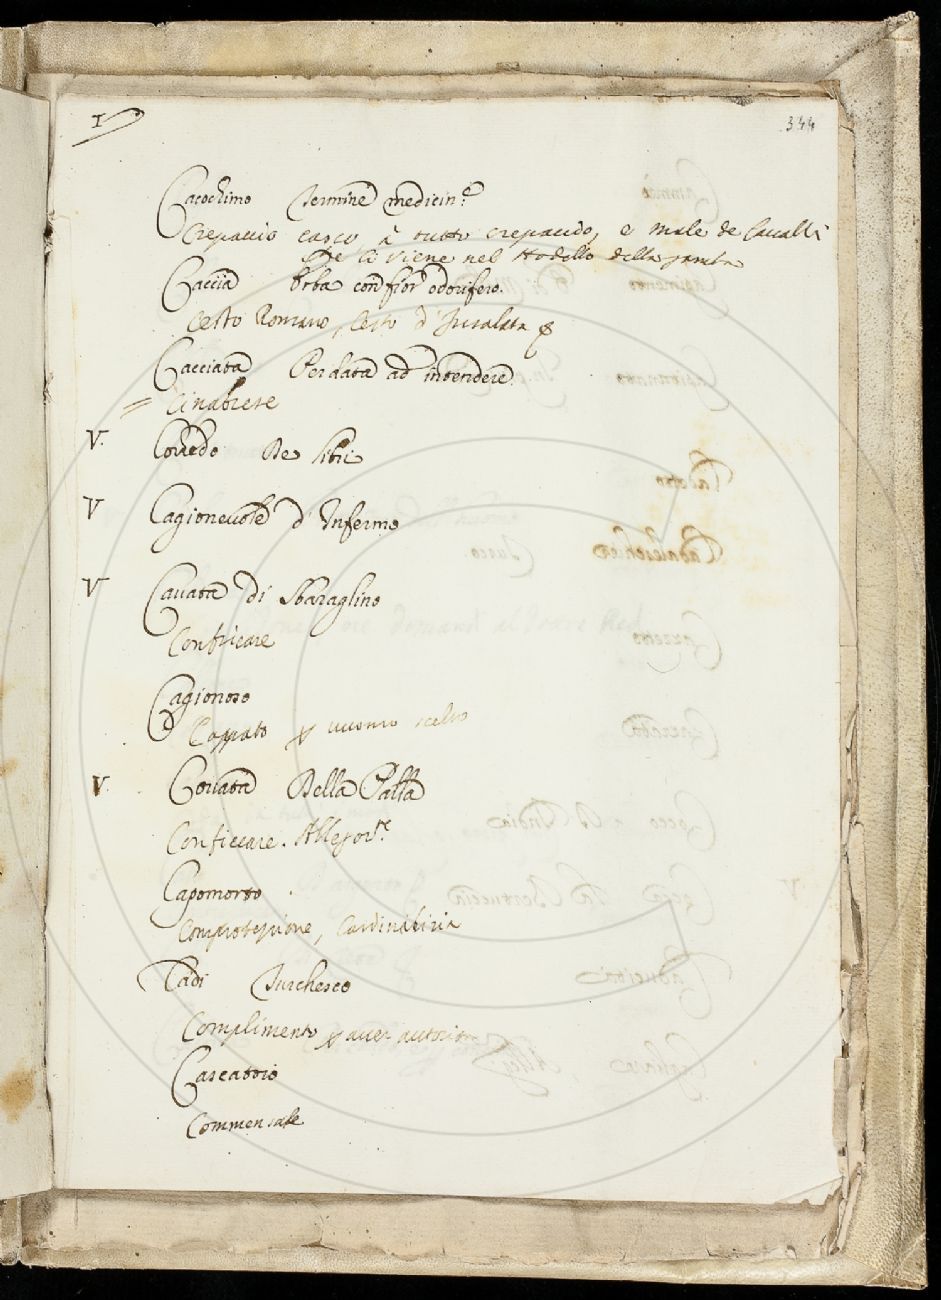 I
344
Cacochimo Termine medicin.e
Crepaccio casco à tutto crepacido, e male de Cavalli
che li viene nel Nodello della gamba
Caccia Erba con fior odorifero.
Cesto Romano, Cesto d'Insalata
Cacciata Per data ad intendere.
= Cinabrese
V. Corredo De libri
V Cagionevole d'Infermo
V Cavata di Sbaraglino
Confricare
Cagionoso
Cappato uuomo scelto
V. Covata Della Palla
Conficcare. Allegor.te
Capomorto
Comprotezione, Cardinalizia
Cadi Turchesco
Complimento aver autorità
Cascaticcio
Commensale